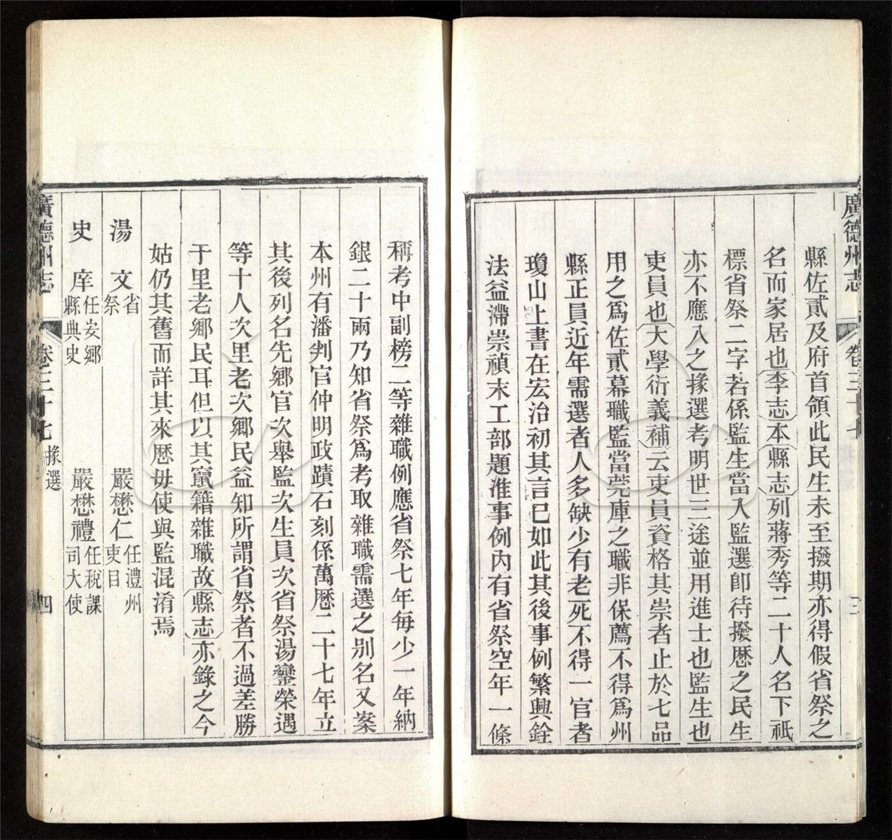 廣德州志
卷三十七
三
縣佐貳及府首領此民生未至撥期亦得假省祭之
名而家居也李志本縣志列蔣秀等二十人名下祗
標省祭二字若係監生當入監選卽待撥歴之民生
亦不應入之掾選考明世三途並用進士也監生也
吏員也大學衍義補云吏員資格其崇者止於七品
用之爲佐貳幕職監當莞庫之職非保薦不得爲州
縣正員近年需選者人多缺少有老死不得一官者
瓊山上書在宏治初其言已如此其後事例繁興銓
法益滯崇禎末工部題准事例內有省祭空年一條
稱考中副榜二等雜職例應省祭七年每少一年納
銀二十兩乃知省祭爲考取雜職需選之别名又案
本州有潘判官仲明政蹟石刻係萬歴二十七年立
其後列名先鄉官次舉監次生員次省祭湯鑾榮遇
等十人次里老次鄉民益知所謂省祭者不過差勝
于里老鄉民耳但以其竄籍雜職故縣志亦錄之今
姑仍其舊而詳其來歴毋使與監混淆焉
湯文省祭 嚴懋仁任澧州吏目
史庠任安鄉縣典史 嚴懋禮任稅課司大使
廣德州志
卷三十七
掾選
四